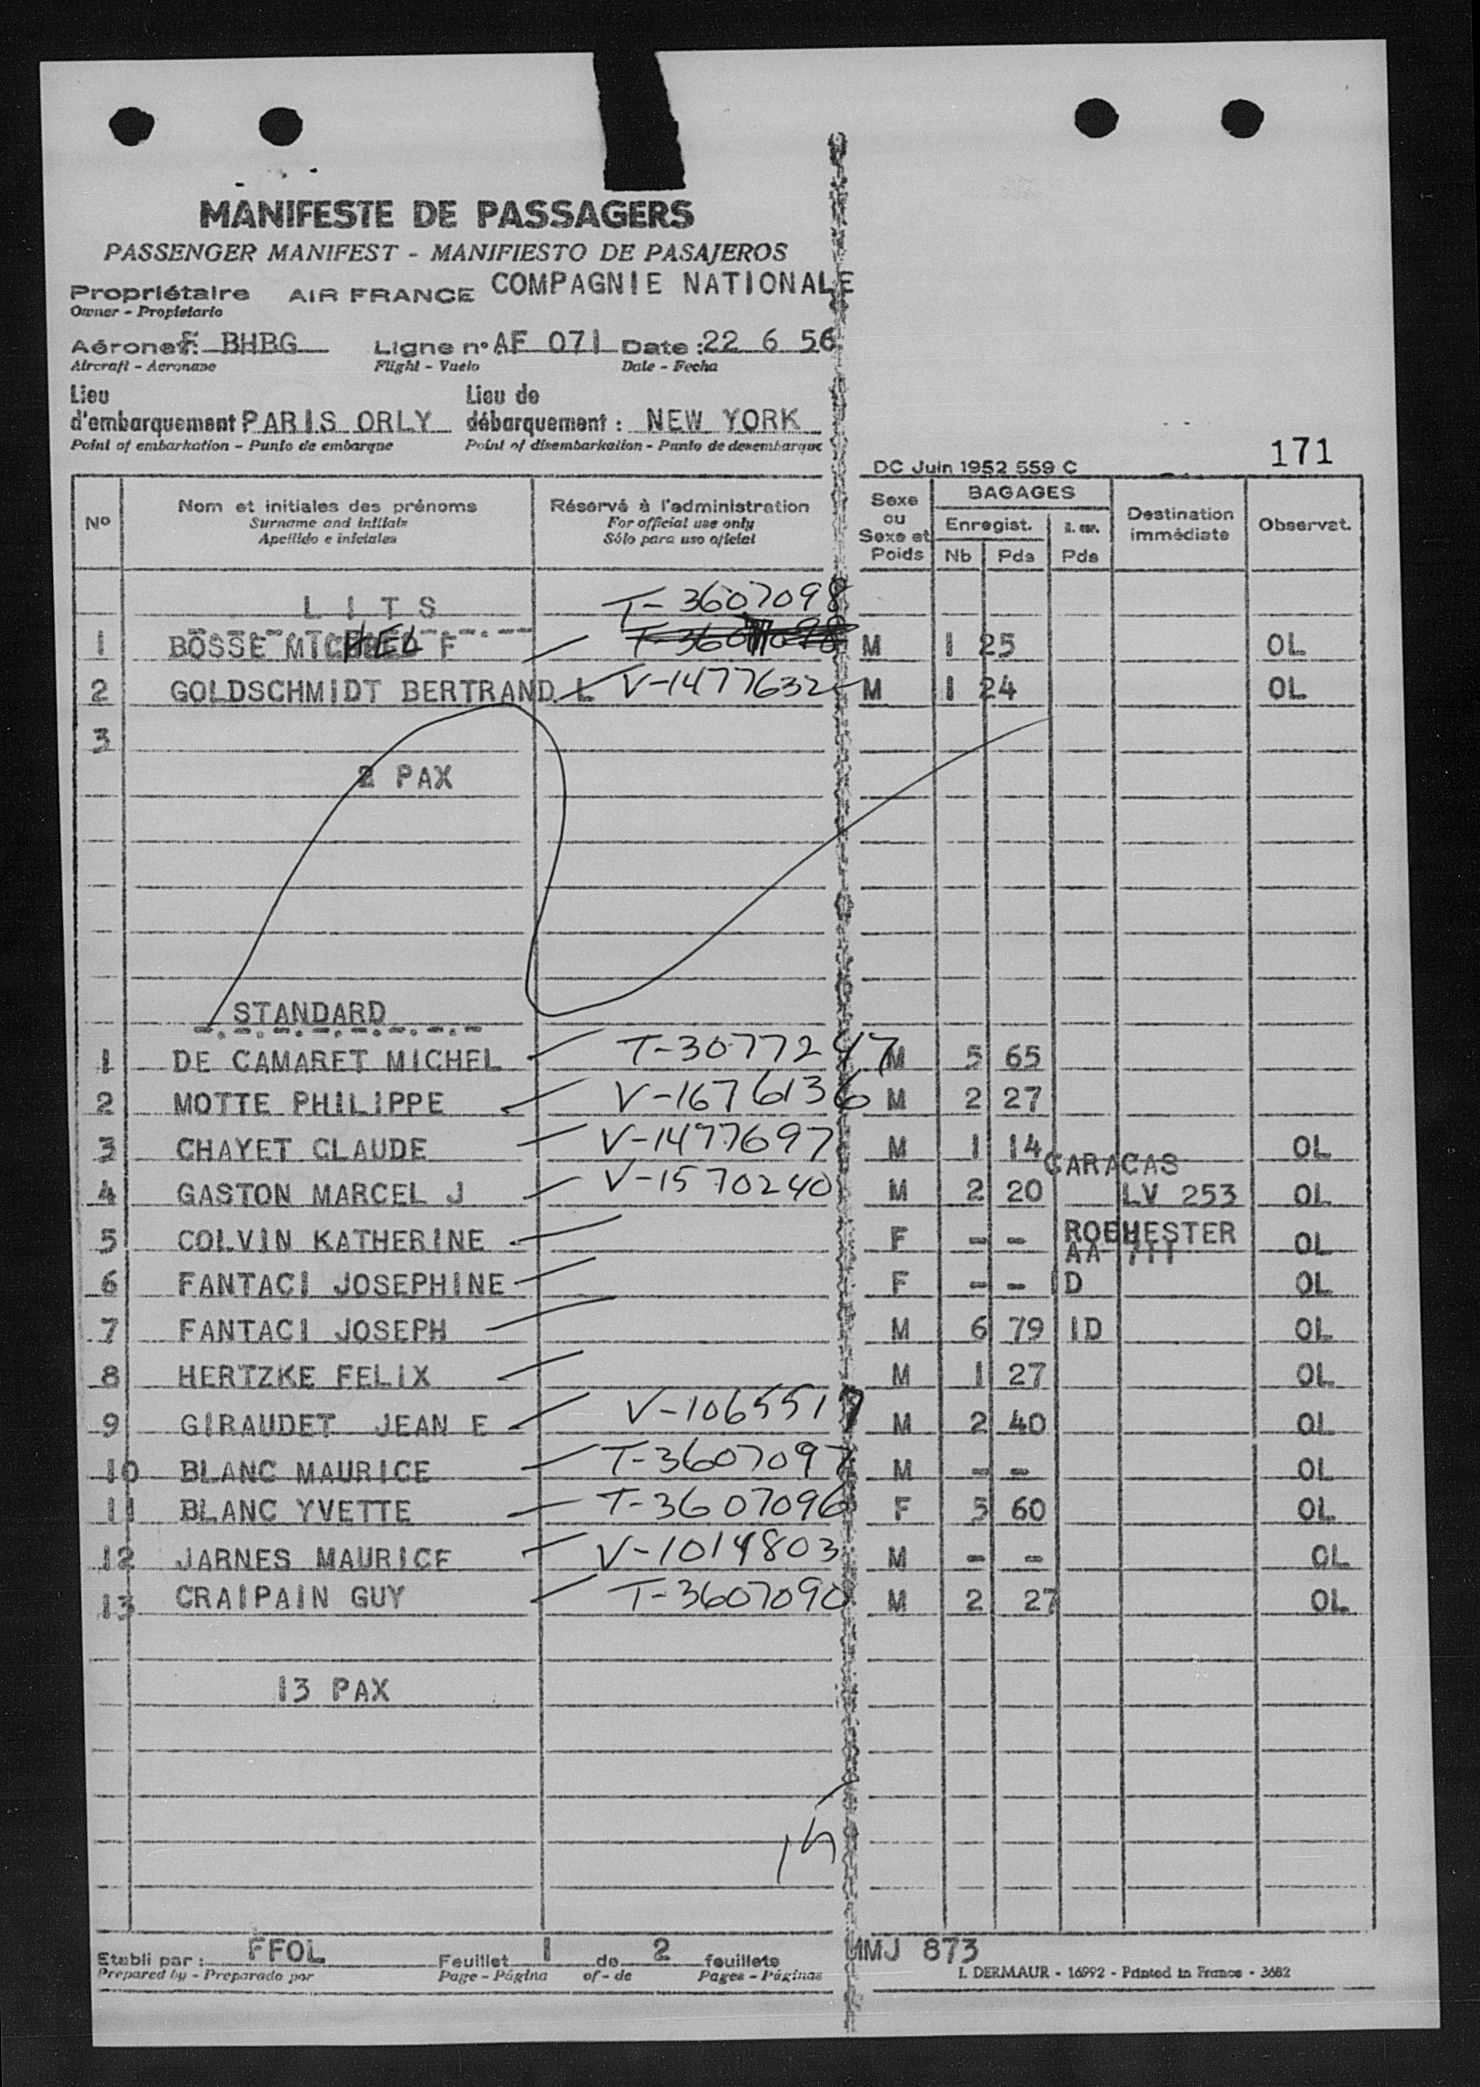 MANIFESTE DE PASSAGERS
PASSENGER MANIFEST - MANIFIESTO DE PASAJEROS
Propriétaire AIR FRANCE COMPAGNIE NATIONALE
Owner - Propietario
Aéronef: F BHBG Ligne n° AF 071 Date : 22 6 56
Aircraft - Aeronave Flight - Vuelo Date - Fecha
Lieu d'embarquement PARIS ORLY Lieu de débarquement : NEW YORK
Point of embarkation - Punto de embarque Point of disembarkation - Punto de desembarque
DC Juin 1952 559 C 171
N° Nom et initiales des prénoms Réservé à l'administration Sexe ou Sexe et Poids BAGAGES Enregist. Nb Pds Pds Destination immédiate Observat.
Surname and initials For official use only
Apellido e iniciales Sólo para uso oficial
LITS T-3607098
1 BOSSE MICHEL F M 1 25 OL
2 GOLDSCHMIDT BERTRAND L V-1477632 M 1 24 OL
3
2 PAX
STANDARD
1 DE CAMARET MICHEL T-3077247 M 5 65
2 MOTTE PHILIPPE V-1676136 M 2 27
3 CHAYET CLAUDE V-1477697 M 1 14 OL
CARACAS
4 GASTON MARCEL J V-1570240 M 2 20 LV 253 OL
5 COLVIN KATHERINE F - - ROEHESTER AA 711 OL
6 FANTACI JOSEPHINE F - - ID OL
7 FANTACI JOSEPH M 6 79 ID OL
8 HERTZKE FELIX M 1 27 OL
9 GIRAUDET JEAN E V-1065517 M 2 40 OL
10 BLANC MAURICE T-3607097 M - - OL
11 BLANC YVETTE T-3607096 F 5 60 OL
12 JARNES MAURICE V-1014803 M - - OL
13 CRAIPAIN GUY T-3607090 M 2 27 OL
13 PAX
15
Etabli par : FFOL Feuillet 1 de 2 feuillets MMJ 873
Prepared by - Preparado por Page - Página of - de Pages - Páginas I. DERMAUR - 16992 - Printed in France - 3682